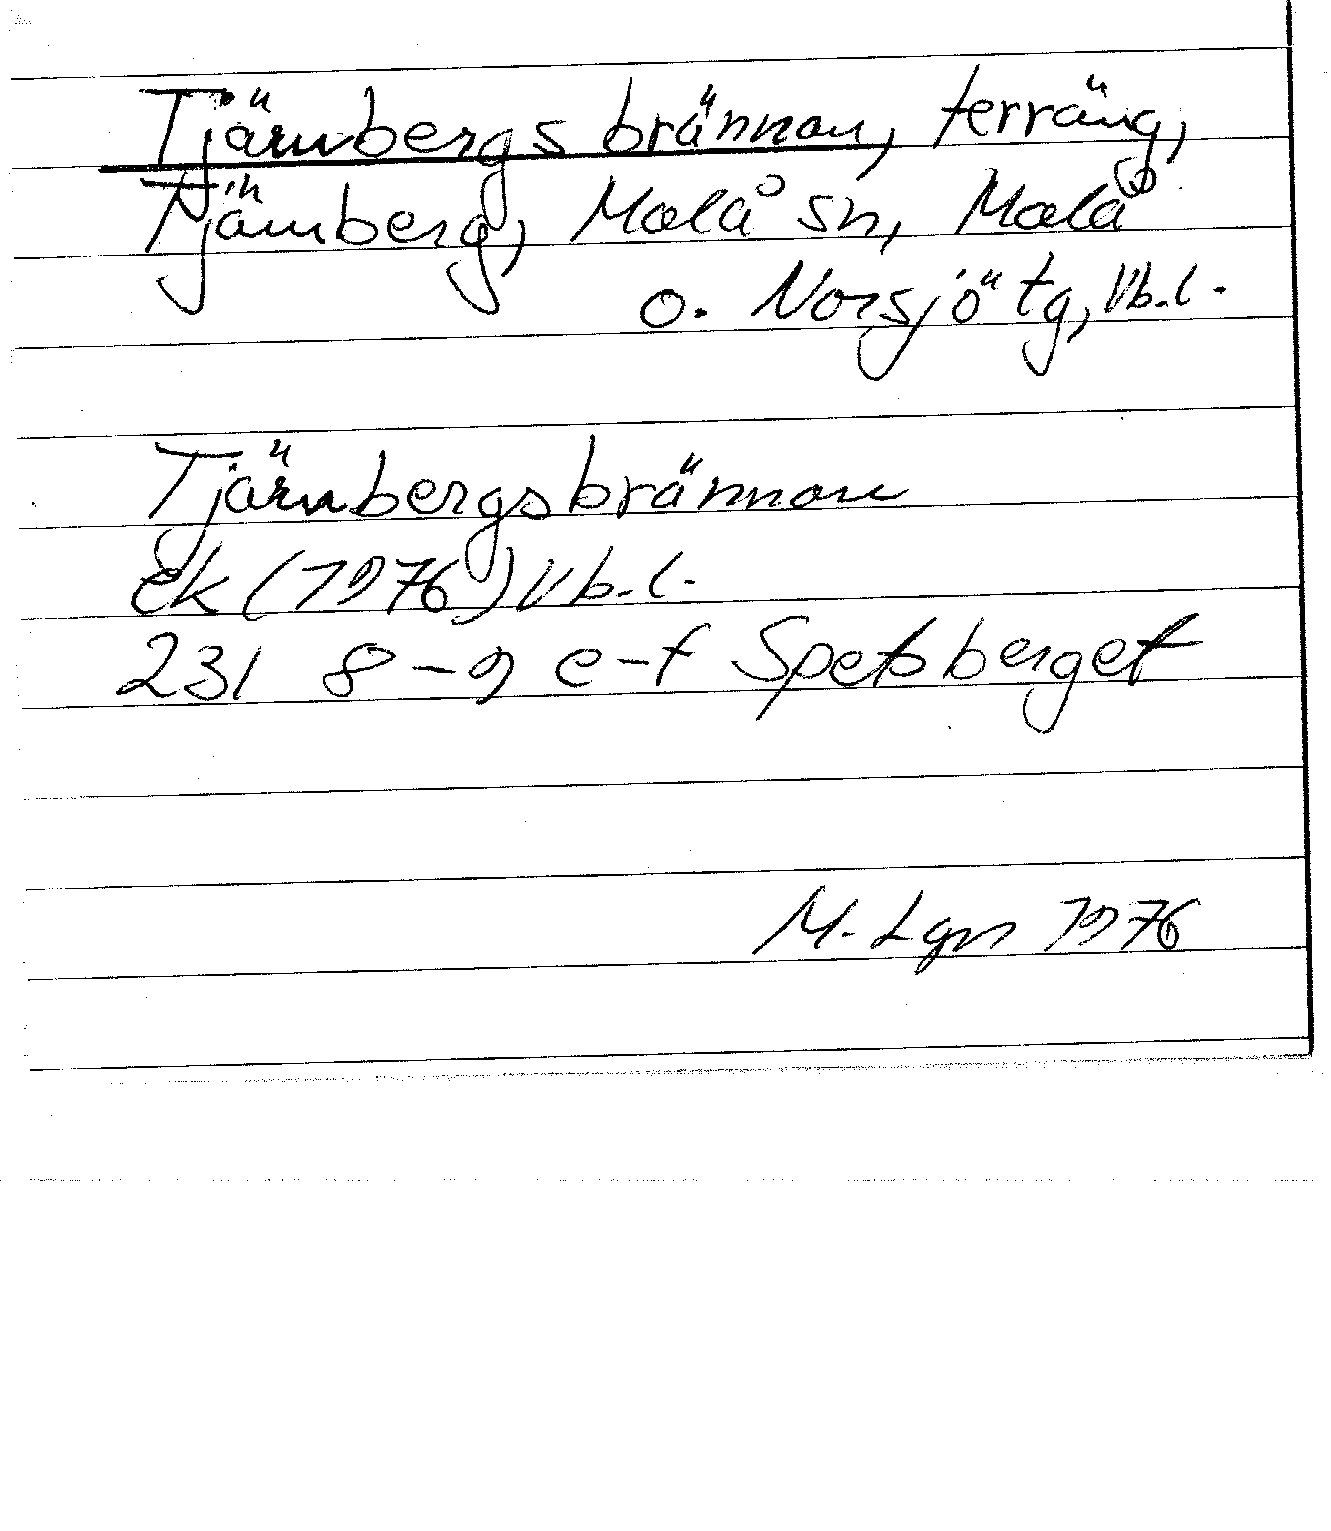 Tjärnbergsbrännan, terräng,
Tjärnberg, Malå sn, Malå
o. Norsjö tg, Vb.l.
Tjärnbergsbrännan
Ek (1976) Vb.l.
23I 8-9 e-f Spetsberget
M. Lgn 1976